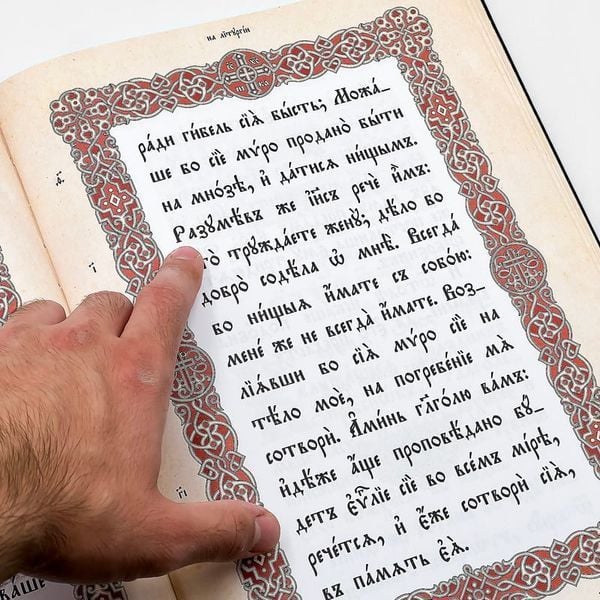 на лїтꙋргїи
ра́ди ги́бель сїѧ̀ бы́сть; Можа́_
ше бо сїѐ мѵ́ро продано̀ бы́ти
на мно́зѣ, и҆ да́тисѧ ни́щымъ.
Разꙋмѣ́въ же і҆и҃съ речѐ и҆̀мъ:
то̀ трꙋжда́ете женꙋ̀; дѣ́ло бо
добро̀ содѣ́ла ѡ҆ мнѣ̀. Всегда́
бо ни́щыѧ и҆́мате съ собо́ю:
мене́ же не всегда̀ и҆́мате. Воз_
лїѧ́вши бо сїѧ̀ мѵ́ро сїѐ на
тѣ́ло моѐ, на погребе́нїе мѧ̀
сотворѝ. А҆ми́нь гл҃го́лю ва́мъ:
и҆дѣ́же а҆́ще проповѣ́дано бꙋ́_
детъ є҆ѵⷢ҇лїе сїѐ во все́мъ мі́рѣ,
рече́тсѧ, и҆ є҆́же сотворѝ сїѧ̀,
въ па́мѧть є҆ѧ̀.
ваше